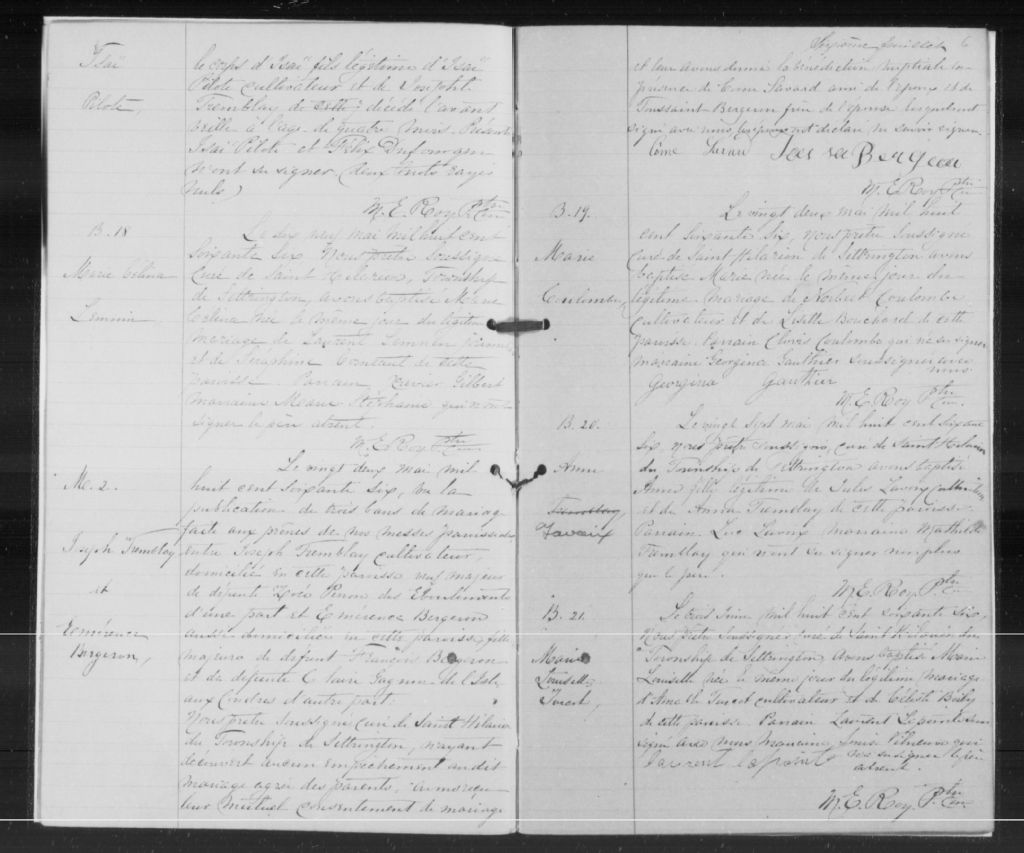 Isaï
Pilote,
le corps d'Isaï fils légitime d'Isaï
Pilote cultivateur et de
Tremblay de cette décédé l'avant
veille à l'age de quatre mois. Présents
Isaï Pilote et Félix Dufour qui
n'ont su signer (deux mots rayés
nuls)
M. E. Roy Ptre
B. 18
Marie Célina
Le six neuf mai mil huit cent
soixante six Nous prêtre soussigné
Curé de Saint Hilarion, Township
de Settrington, avons baptisé Marie
Célina née le même jour du légitime
mariage de Laurent
et de Séraphine de cette
paroisse. Parrain Xavier Gilbert
Marraine Marie Stéphanie qui n'ont
signer le père absent.
M. E. Roy Ptre
M. 2.
Joseph Tremblay
et
Emérence
Bergeron,
Le vingt deux mai mil
huit cent soixante six, vu la
publication de trois bans de mariage
faite aux prônes de nos messes paroissiales
entre Joseph Tremblay cultivateur,
domicilié en cette paroisse veuf majeur
de défunte Zoé Perron des Eboulements
d'une part et Emérence Bergeron
aussi domiciliée en cette paroisse, fille
majeure de défunt François Bergeron
et de défunte Claire Gagnon de l'Isle
aux Coudres d'autre part.
Nous prêtre soussigné curé de Saint Hilarion
du Township de Settrington, n'ayant
découvert aucun empêchement au dit
mariage agréé des parents, avons reçu
leur mutuel consentement de mariage
feuillet 6
et leur avons donné la bénédiction nuptiale en
présence de Come Savard ami de l'époux et de
Toussaint Bergeron frère de l'épouse lesquels ont
signé avec nous les époux ont déclaré ne savoir signer
Côme Savard Bergeron
M. E. Roy Ptre
B. 19.
Marie
Coulombe,
Le vingt deux mai mil huit
cent soixante six, Nous prêtre soussigné
curé de Saint Hilarion de Settrington avons
baptisé Marie née le même jour du
légitime mariage de Norbert Coulombe
cultivateur et de Lisette Bouchard de cette
paroisse. Parrain Clovis Coulombe qui ne su signer
marraine Georgina Gauthier soussignée avec
nous
Georgina Gauthier
M. E. Roy Ptre
B. 20.
Anna
Tremblay
Lavoix
Le vingt sept mai mil huit cent soixante
six, nous prêtre soussigné, curé de Saint Hilarion
du Township de Settrington avons baptisé
Anna fille légitime de Jules Lavoix cultivateur
et de Anna Tremblay de cette paroisse.
Parrain Luc Lavoix marraine Mathilde
Tremblay qui n'ont su signer non plus
que le père.
M. E. Roy Ptre
B. 21.
Marie
Louisette
Turcot,
Le trois Juin mil huit cent soixante six,
Nous prêtre soussigné curé de Saint Hilarion du
Township de Settrington avons baptisé Marie
Louisette née le même jour du légitime mariage
d'Anselme Turcot cultivateur et de Céleste
de cette paroisse. Parrain Laurent Lapointe
signé avec nous Marraine Louise Villeneuve qui
n'a su signer le père
Laurent Lapointe
absent.
M. E. Roy Ptre